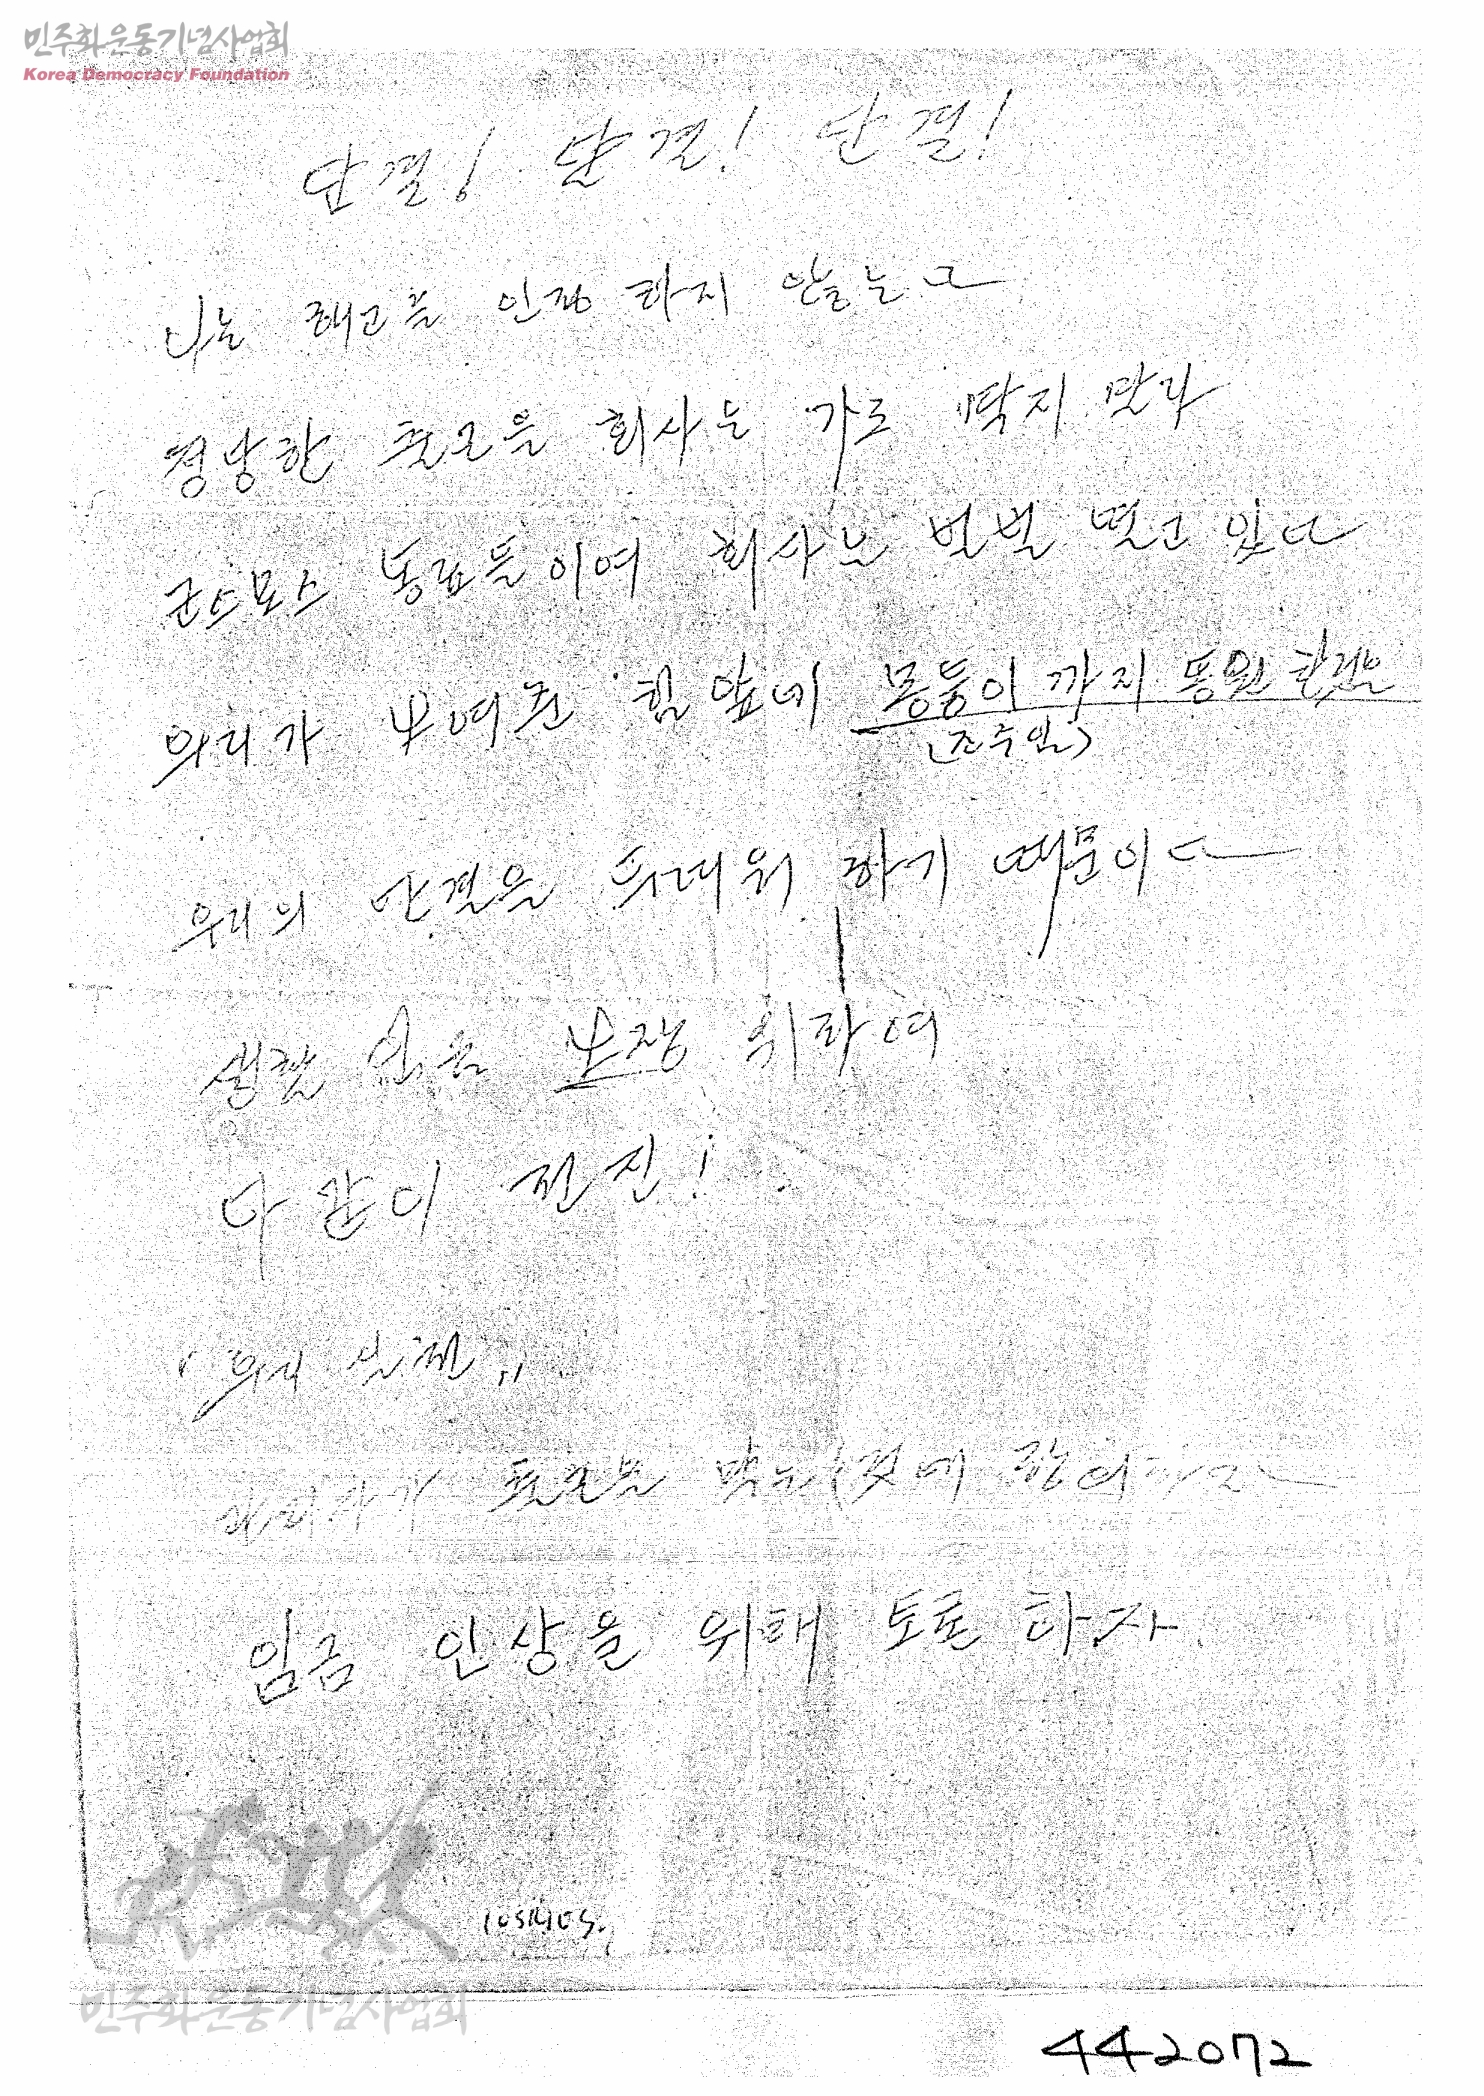 민주화운동기념사업회
Korea Democracy Foundation
단결! 단결! 단결!
나는 해고를 인정 하지 않는다
정당한 출근을 회사는 가로 막지 말라
코스모스 동료들이여 회사는 벌벌 떨고 있다
우리가 보여준 힘 앞에 몽둥이 까지 동원 한것은
(조수일)
우리의 단결을 두려워 하기 때문이다
생활 임금 보장 위하여
다 같이 전진!
우리
출근을 막는 것에
임금 인상을 위해 토론 하자
COSMOS.
민주화운동기념사업회
442072